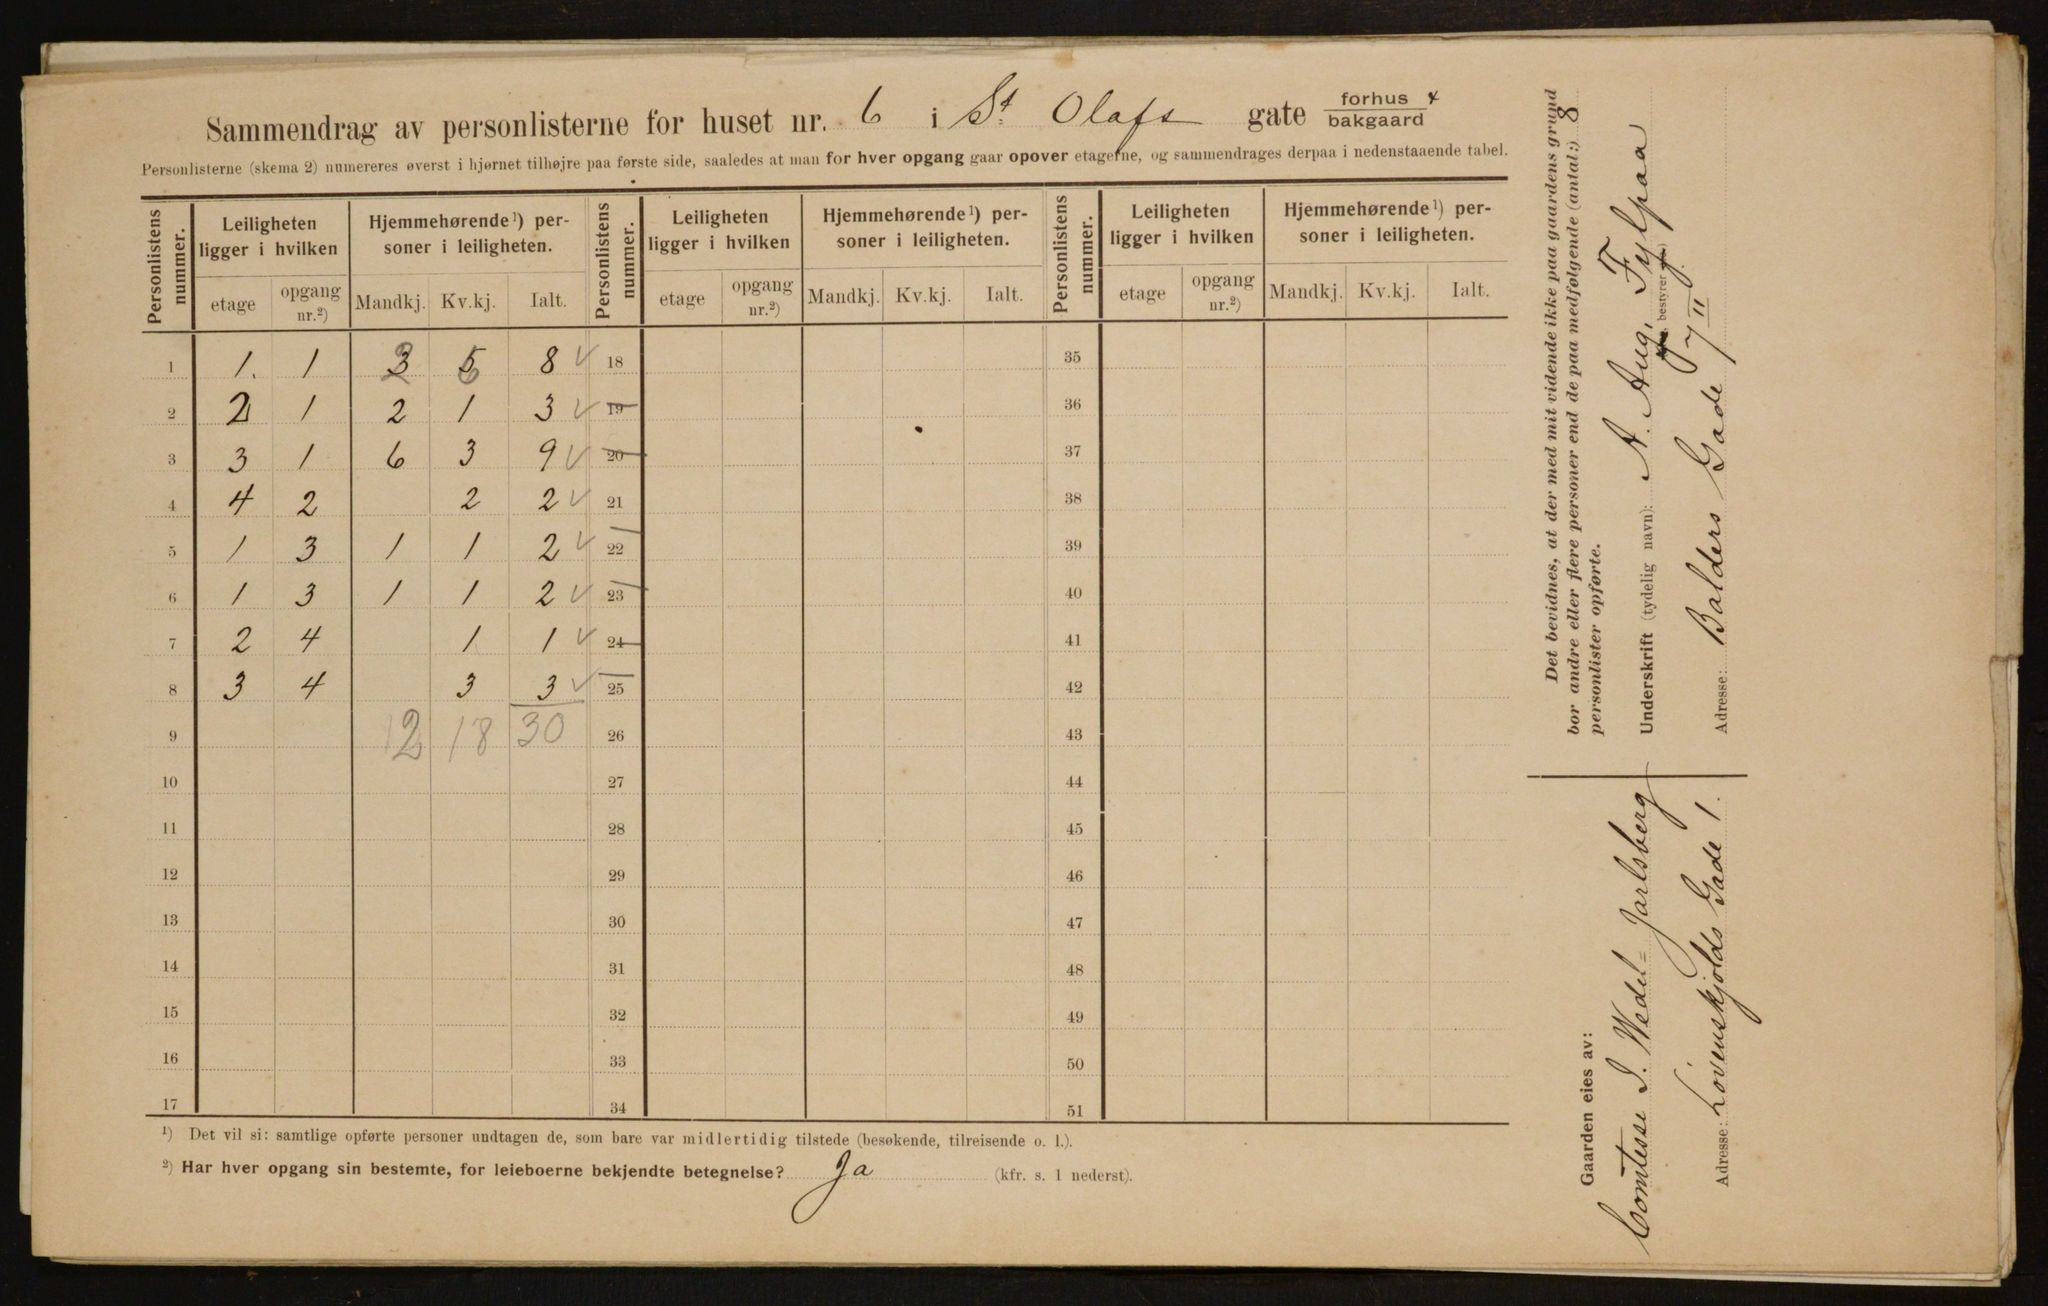 Sammendrag av personlisterne for huset nr. 6 i St. Olafs gate forhus x
bakgaard
Personlisterne (skema 2) numereres øverst i hjørnet tilhøjre paa første side, saaledes at man for hver opgang gaar opover etagerne, og sammendrages derpaa i nedenstaaende tabel.
Personlistens nummer. Leiligheten ligger i hvilken Hjemmehørende¹) personer i leiligheten. Personlistens nummer. Leiligheten ligger i hvilken Hjemmehørende¹) personer i leiligheten. Personlistens nummer. Leiligheten ligger i hvilken Hjemmehørende¹) personer i leiligheten.
etage opgang nr.²) Mandkj. Kv.kj. Ialt. etage opgang nr.²) Mandkj. Kv.kj. Ialt. etage opgang nr.²) Mandkj. Kv.kj. Ialt.
1 1. 1 3 2 5 6 8 ✓ 18 35
2 2 1 2 1 3 ✓ 19 36
3 3 1 6 3 9 ✓ 20 37
4 4 2 2 2 ✓ 21 38
5 1 3 1 1 2 ✓ 22 39
6 1 3 1 1 2 ✓ 23 40
7 2 4 1 1 ✓ 24 41
8 3 4 3 3 ✓ 25 42
9 12 18 30 26 43
10 27 44
11 28 45
12 29 46
13 30 47
14 31 48
15 32 49
16 33 50
17 34 51
¹) Det vil si: samtlige opførte personer undtagen de, som bare var midlertidig tilstede (besøkende, tilreisende o. l.).
²) Har hver opgang sin bestemte, for leieboerne bekjendte betegnelse? Ja (kfr. s. 1 nederst).
Det bevidnes, at der med mit vidende ikke paa gaardens grund
bor andre eller flere personer end de paa medfølgende (antal:) 8
personlister opførte.
Underskrift (tydelig navn): A. Aug. Fylpaa
bestyrer
Adresse: Balders Gade 7 II
Gaarden eies av:
Comtesse I. Wedel-Jarlsberg
Adresse: Løvenskjolds Gade 1.